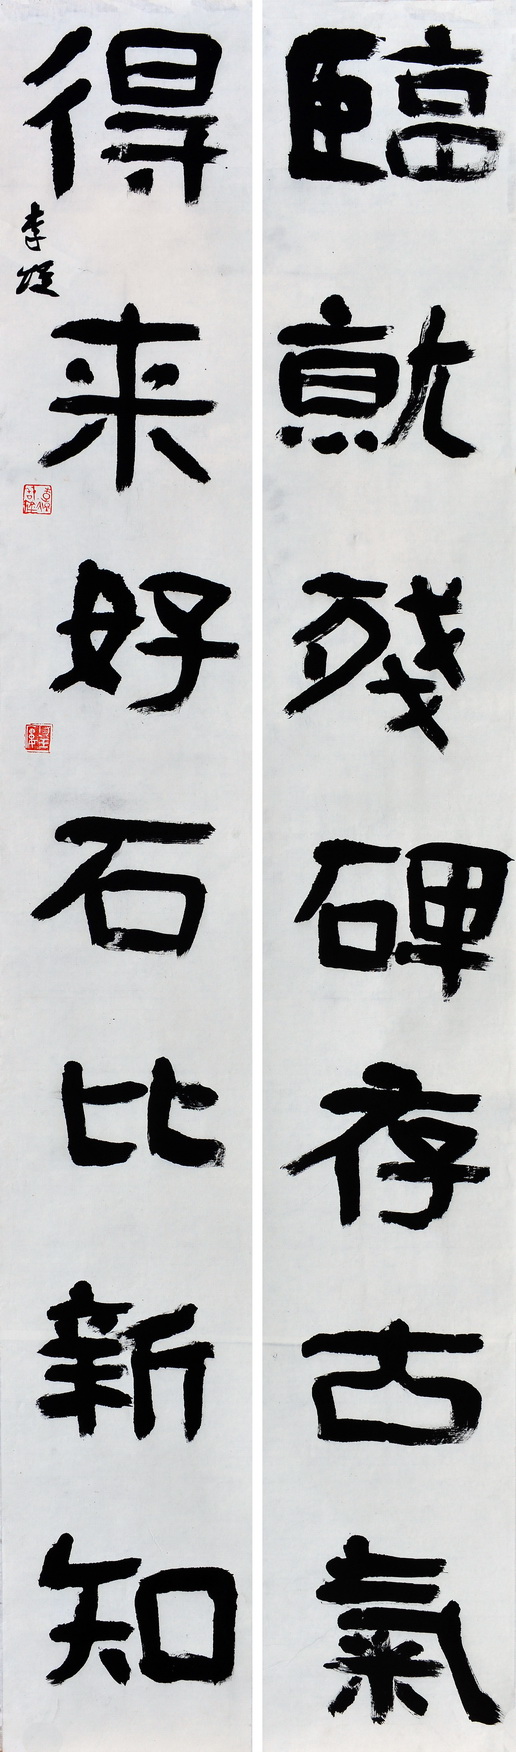 臨就殘碑存古氣
得来好石比新知
李